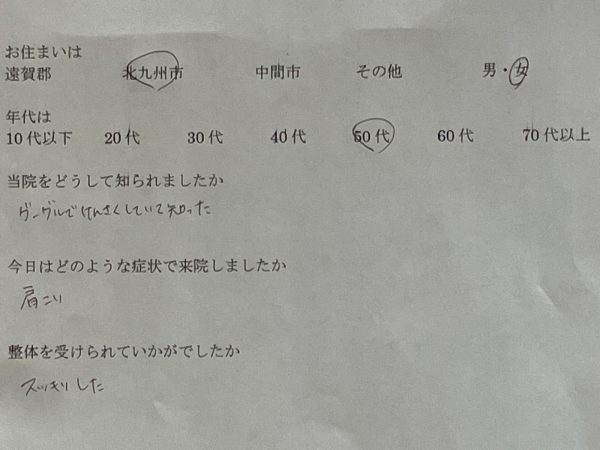 お住まいは
遠賀郡 北九州市 中間市 その他 男・女
年代は
10代以下 20代 30代 40代 50代 60代 70代以上
当院をどうして知られましたか
グーグルでけんさくしていて知った
今日はどのような症状で来院しましたか
肩こり
整体を受けられていかがでしたか
スッキリした